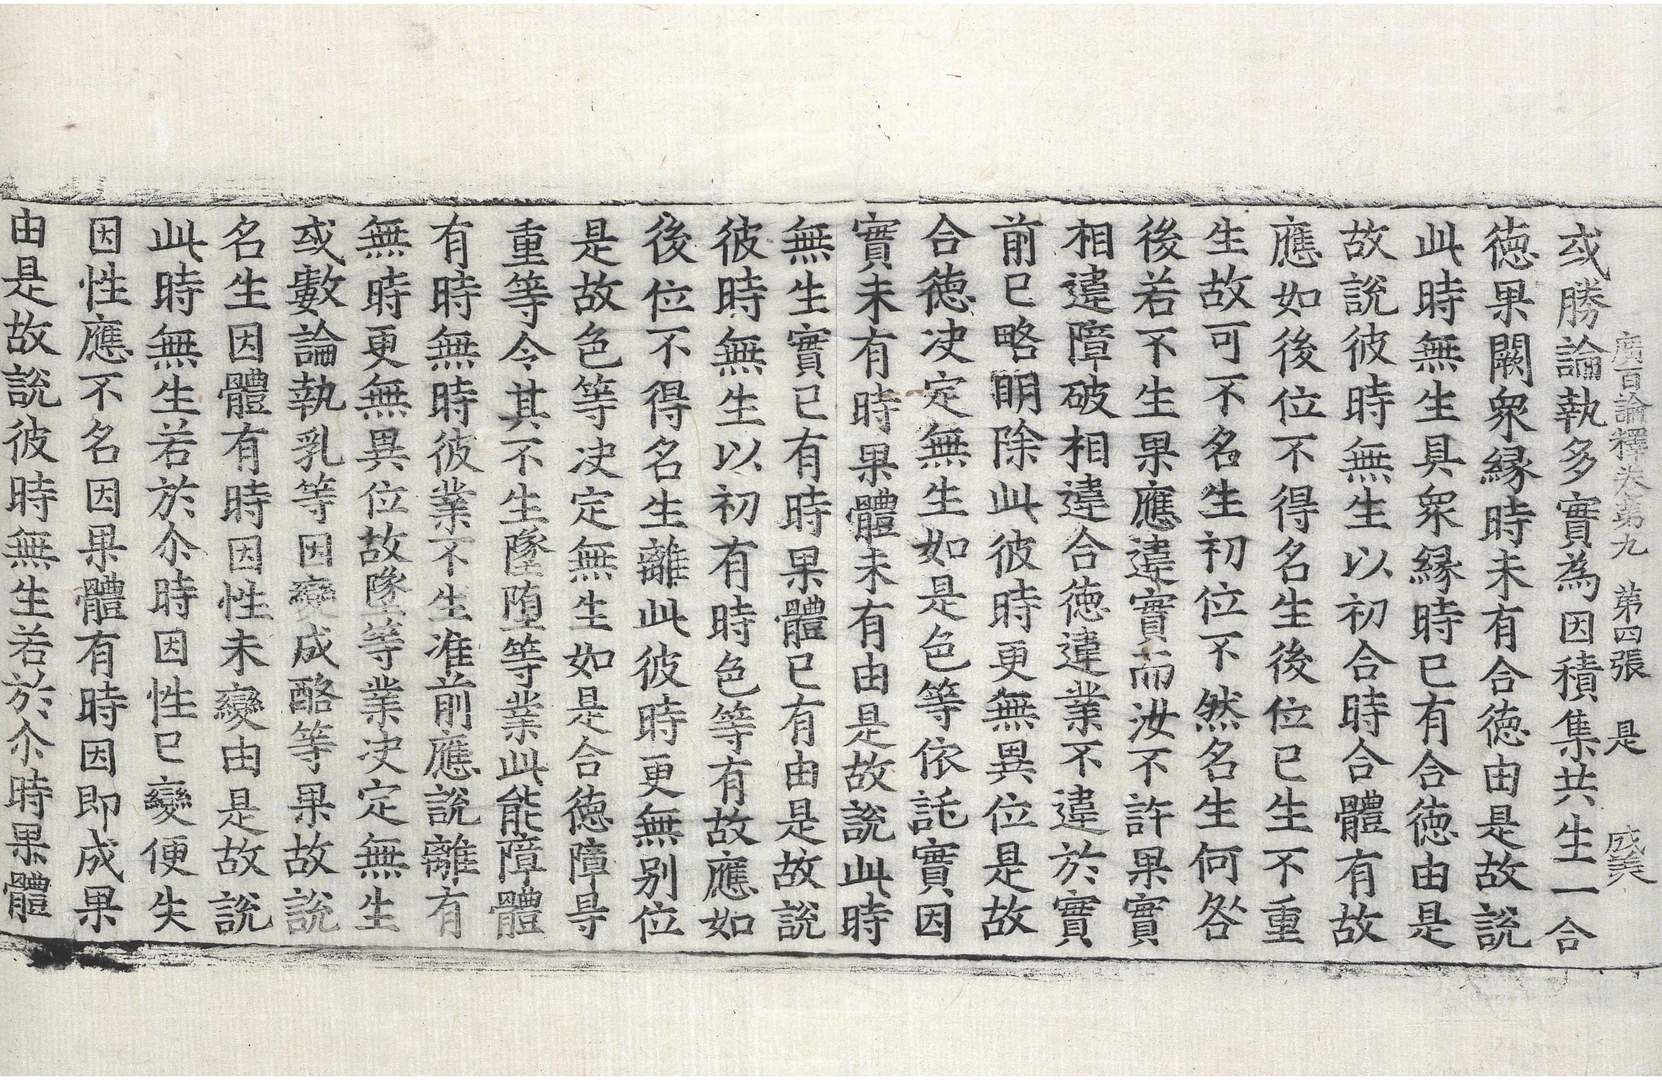 廣百論釋卷第九　第四張　是　成美
或勝論執多實為因積集共生一合
德果闕衆緣時未有合德由是故說
此時無生具衆緣時已有合德由是
故說彼時無生以初合時合體有故
應如後位不得名生後位已生不重
生故可不名生初位不然名生何咎
後若不生果應違實而汝不許果實
相違障破相違合德違業不違於實
前已略明除此彼時更無異位是故
合德决定無生如是色等依託實因
實未有時果體未有由是故說此時
無生實已有時果體已有由是故說
彼時無生以初有時色等有故應如
後位不得名生離此彼時更無別位
是故色等决定無生如是合德障㝵
重等令其不生墜墮等業此能障體
有時無時彼業不生准前應說離有
無時更無異位故墜等業决定無生
或數論執乳等因變成酪等果故說
名生因體有時因性未變由是故說
此時無生若於尒時因性已變便失
因性應不名因果體有時因即成果
由是故說彼時無生若於尒時果體